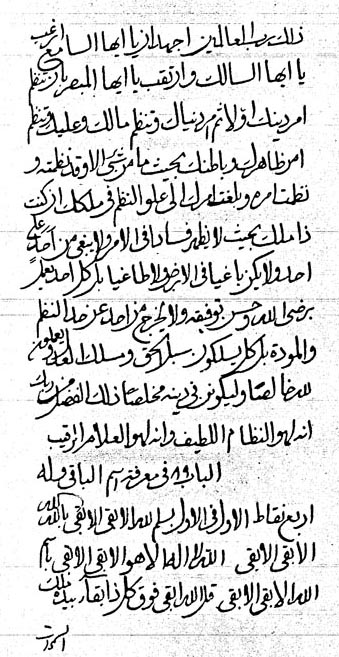 ذلك رب العالمين اجهد ان يا ايها السامع ارغب
يا ايها السالك وارتقب يا ايها المبصر بان تنظم
امر دينك اولا ثم امر دنياك وتنظم مالك وعليك وتنظم
امر ظاهرك وباطنك بحيث ما من شيء الا وقد نظمته و
نظمت امره وبلغت امرك الى علو النظم في ملكك ان كنت
ذا ملك بحيث لا يظهر فسادا في الامر ولا يبغى من احد على
احد ولا يكن باغيا في الارض ولا طاغيا بل كل احد يعلم
برضى الله وحسن توفيقه ولا يخرج من احد عن حد النظم
والمودة بل كل يسلكون سبل الحق ومسلك العدل يعلمون
لله خالصا وليكونن في دينه مخلصا ذلك الفضل من ربك
انه لهو النظام اللطيف وانه لهو العلام الرقيب
الباب في معرفة اسم الباقي وله
اربع نقاط الاول في الاول بسم الله الابقى الابقى بالله الله
الابقى الابقى الله لا اله الا هو الابقى الابقى باسم
الله الابقى الابقى قل الله ابقى فوق كل ذا بقاء بيده ملكوت